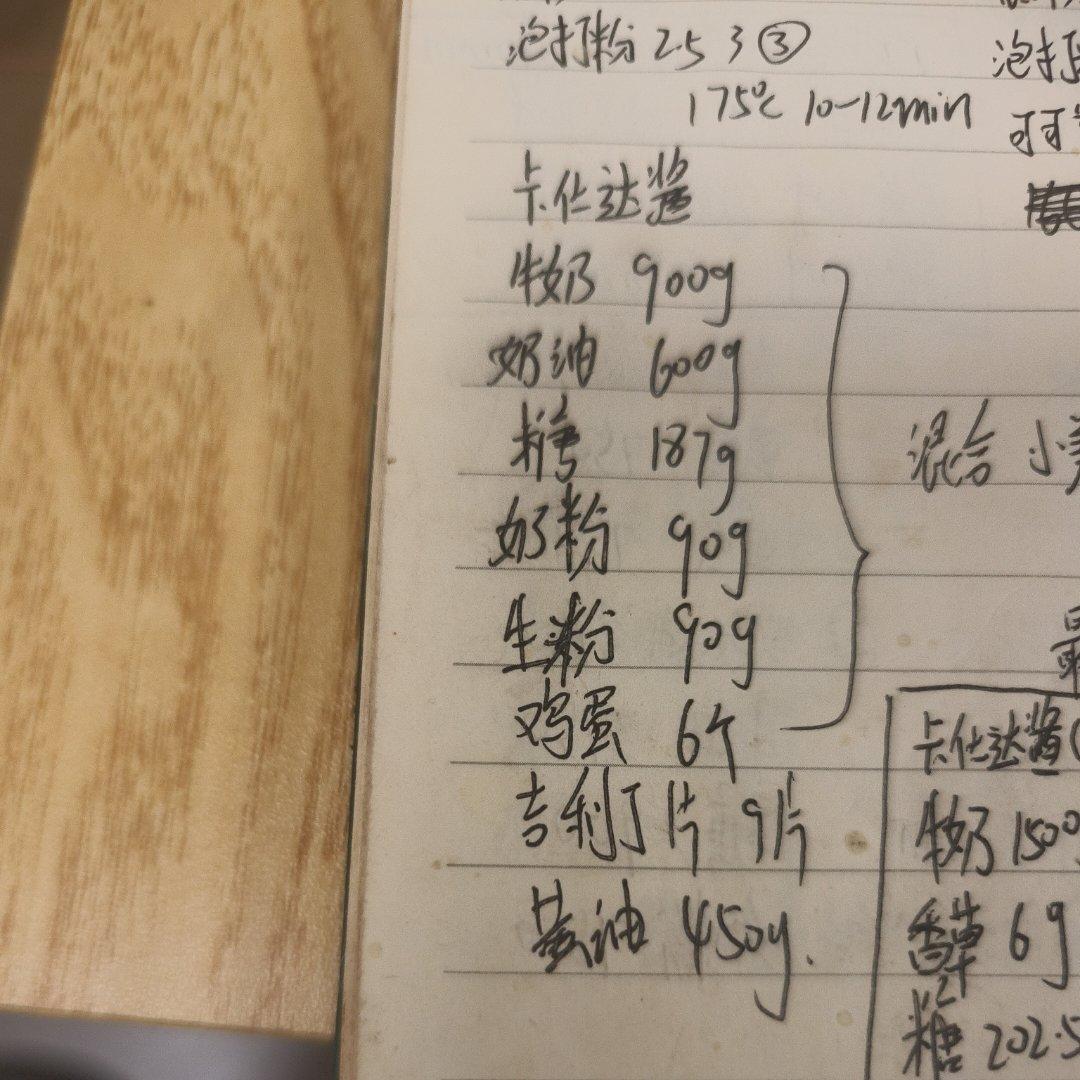 泡打粉 2.5 3 ③
175℃ 10-12min
卡仕达酱
牛奶 900g
奶油 600g
糖 187g
奶粉 90g
生粉 90g
鸡蛋 6个
吉利丁片 9片
黄油 450g.
泡打
可可
混合 小
最
卡仕达酱(
牛奶 1500
香草 6g
糖 202.5